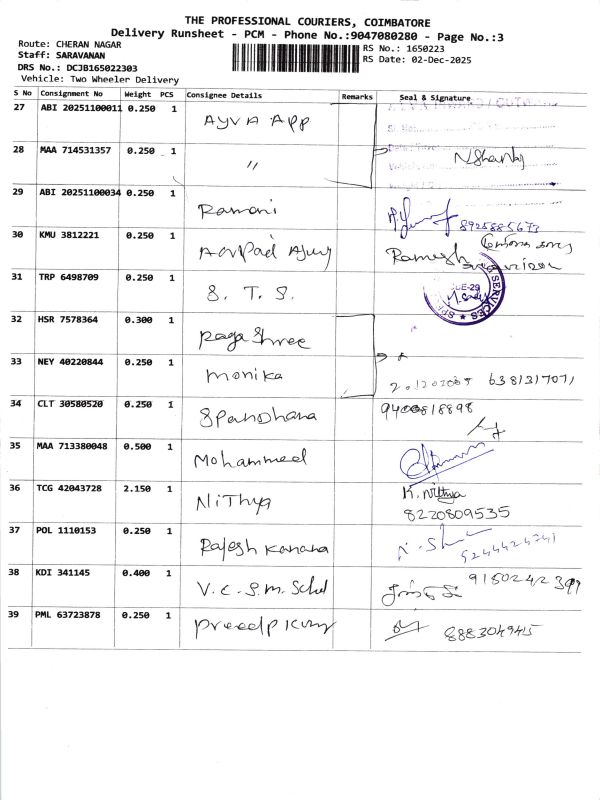 THE PROFESSIONAL COURIERS, COIMBATORE
Delivery Runsheet - PCM - Phone No.:9047080280 - Page No.:3
Route: CHERAN NAGAR
Staff: SARAVANAN
DRS No.: DCJB165022303
Vehicle: Two Wheeler Delivery
RS No.: 1650223
RS Date: 02-Dec-2025
S No Consignment No Weight PCS Consignee Details Remarks Seal & Signature
27 ABI 20251100011 0.250 1 AYVA APP
28 MAA 714531357 0.250 1 "
29 ABI 20251100034 0.250 1 Ramani 8925885673
30 KMU 3812221 0.250 1 Ramesh
31 TRP 6498709 0.250 1 S. T. S.
SERVICES
32 HSR 7578364 0.300 1 Raga Shree
33 NEY 40220844 0.250 1 Monika 6381317071
34 CLT 30580520 0.250 1 Spandhana 9400818898
35 MAA 713380048 0.500 1 Mohammed
36 TCG 42043728 2.150 1 NiThya K. Nithya
8220809535
37 POL 1110153 0.250 1 Rajesh Kanana
38 KDI 341145 0.400 1 V. C. S. M. Schol
39 PML 63723878 0.250 1 8883049415